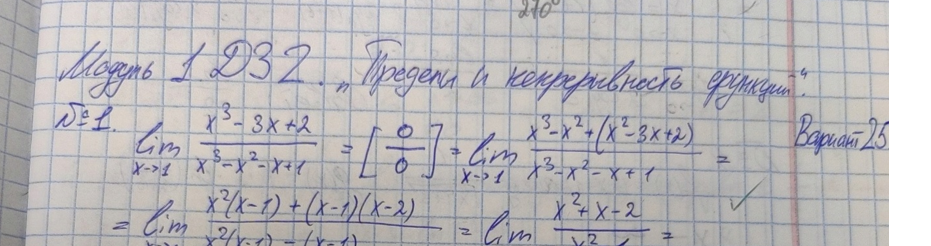 270°
Модуль 1 ДЗ 2. „Пределы и непрерывность функций“.
№1. lim x→1 (x³-3x+2)/(x³-x²-x+1) = [0/0] = lim x→1 (x³-x²+(x²-3x+2))/(x³-x²-x+1) = Вариант 25
= lim (x²(x-1)+(x-1)(x-2))/(x²(x-1)-(x-1)) = lim (x²+x-2)/(x²-1) =